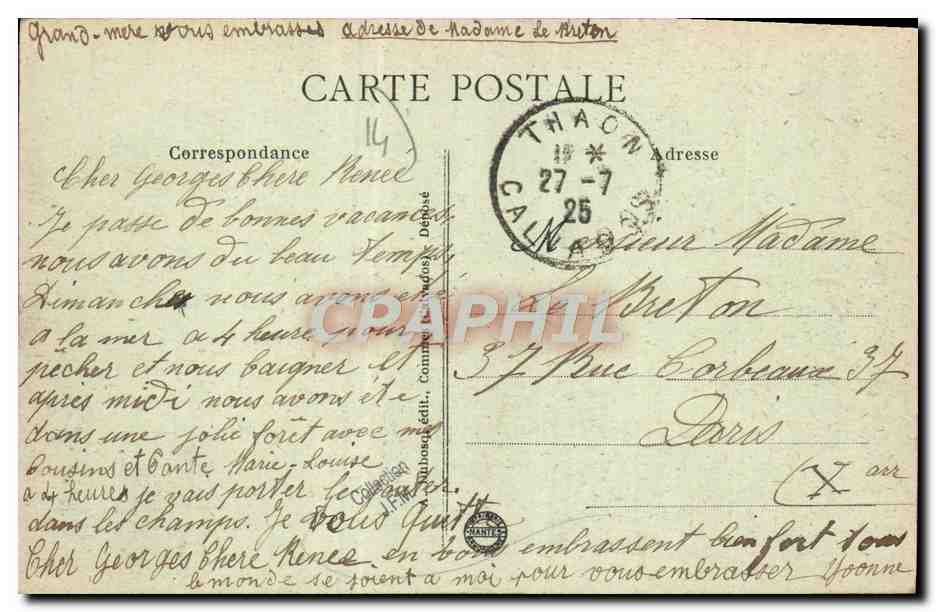 Grand-mere vous embrasses adresse de Madame Le Breton
CARTE POSTALE
14
Correspondance
Adresse
THAON
27 - 7
25
CALVADOS
Cher Georges Chere Renée
Je passe de bonnes vacances,
nous avons du beau temps,
Dimanche nous avons été
a la mer a 4 heures pour
pêcher et nous baigner Et
après midi nous avons été
dans une jolie forêt avec mes
Cousins et Tante Marie-Louise
a 4 heures je vais porter le gouter.
dans les champs. Je vous quitte
Cher Georges Chere Renée en vous embrassent bien fort tous
le monde se joient a moi pour vous embrasser Yvonne
Monsieur Madame
Le Breton
37 Rue Corbeaux 37
Paris
(X arr
édit., Commes (Calvados) Déposé
Collection
J.P.M.
NANTES
CPAPHIL